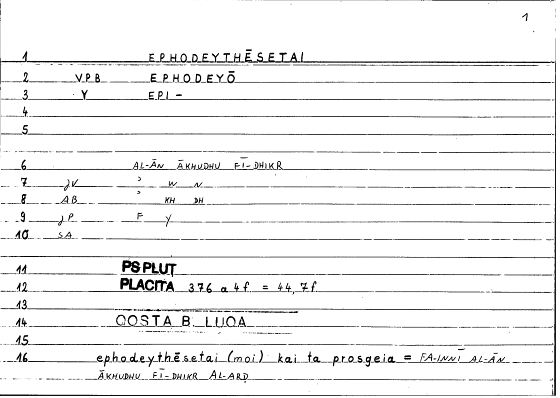 1
1 EPHODEYTHĒSETAI
2 V.P.B EPHODEYŌ
3 Y EPI-
4
5
6 AL-ĀN ĀKHUDHU FĪ-DHIKR
7 JV ʾ W N
8 AB ʾ KH DH
9 JP F Y
10 SA
11 PS PLUT
12 PLACITA 376 a 4f = 44,7f
13
14 QOSTA B. LUQA
15
16 ephodeythēsetai (moi) kai ta prosgeia = FA-INNĪ AL-ĀN
ĀKHUDHU FĪ-DHIKR AL-ARḌ